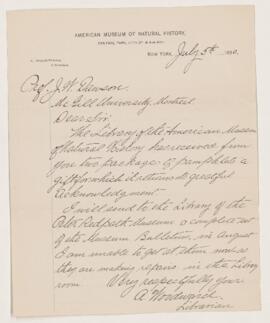 AMERICAN MUSEUM OF NATURAL HISTORY,
CENTRAL PARK,
NEW YORK, July 5th 1890.
Prof. J. W. Dawson
McGill University, Montreal
Dear Sir:
The Library of the American Museum
of Natural History has received from
you two packages of pamphlets a
gift for which it returns its grateful
acknowledgment
I will send to the Library of the
Peter Redpath Museum a complete set
of the Museum Bulletin, in August
I am unable to get at them now as
they are making repairs in the Library
room
Very respectfully yours
A. Woodward
Librarian